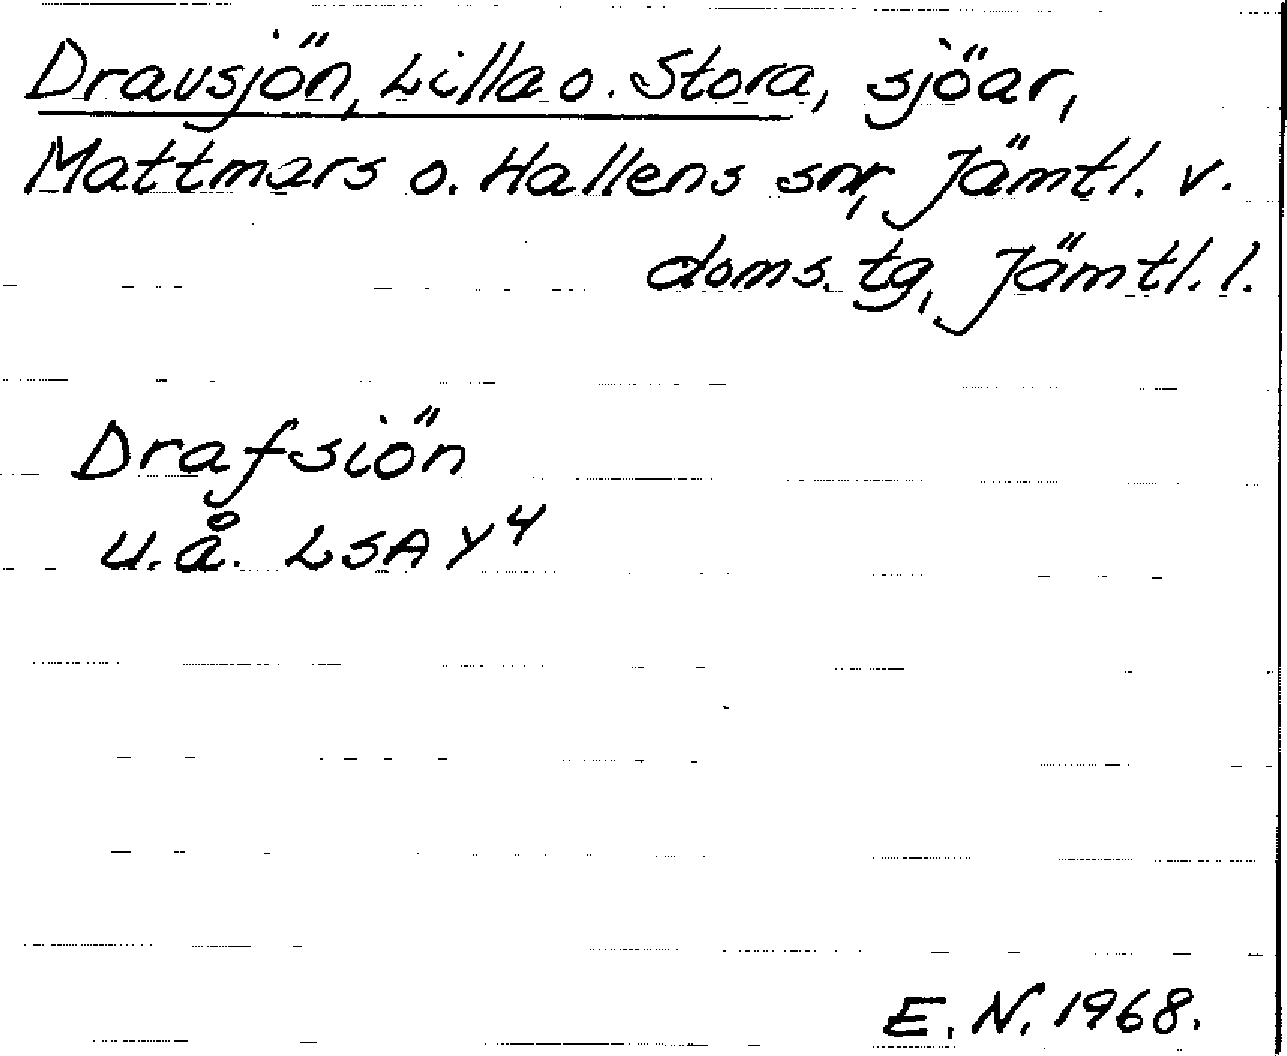 Dravsjön, Lilla o. Stora, sjöar,
Mattmars o. Hallens snr, Jämtl. v.
doms. tg, Jämtl. l.
Drafsiön
u.å. LSA Y4
E. N. 1968.